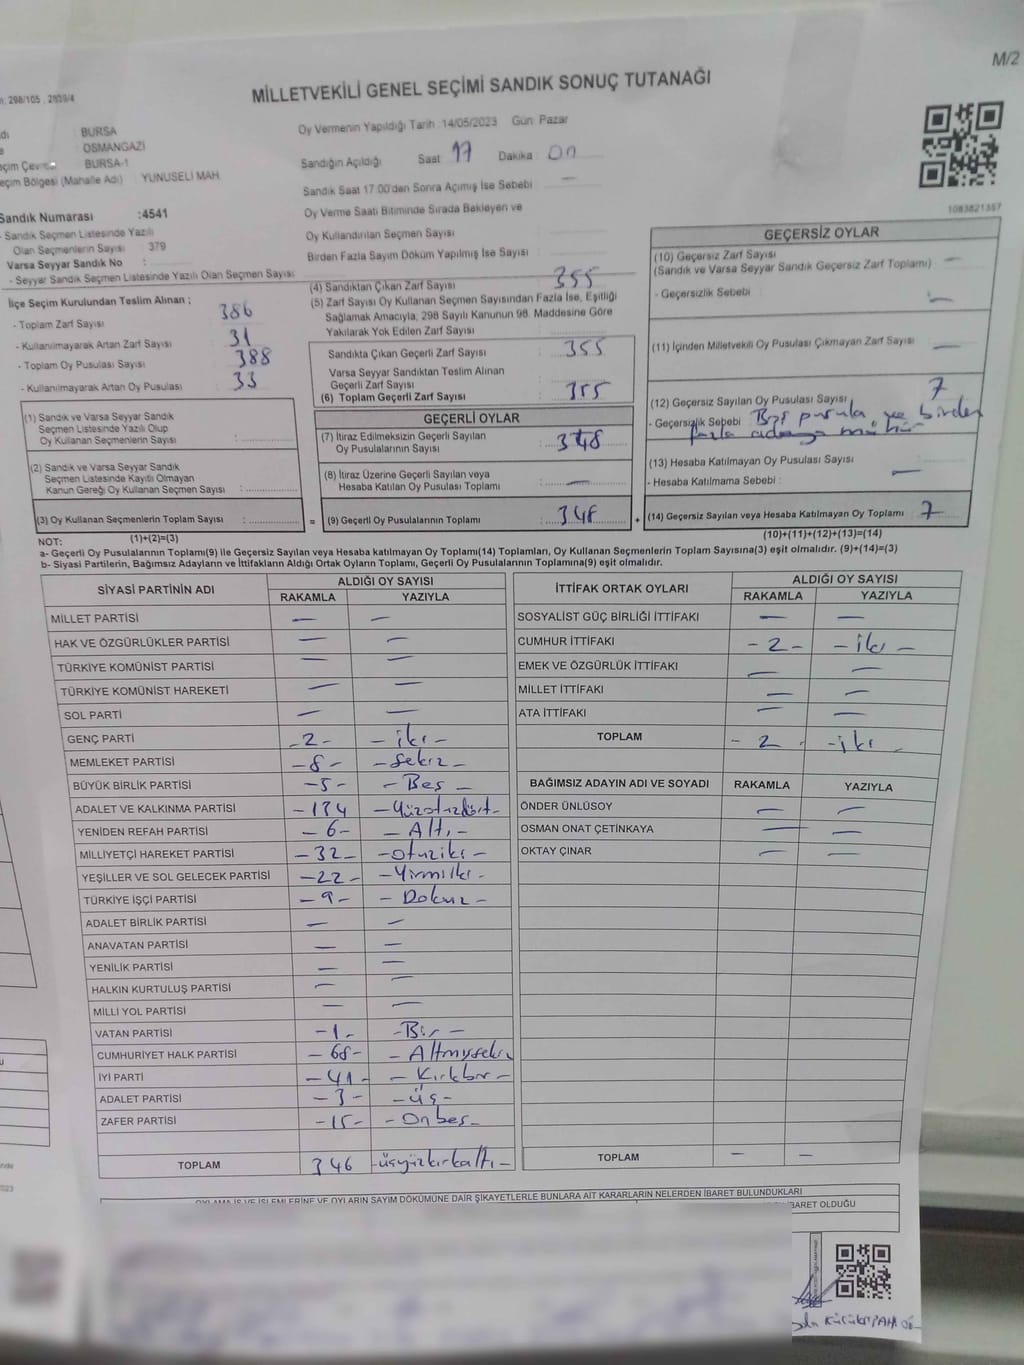 M/2
298/105 , 2839/4
MİLLETVEKİLİ GENEL SEÇİMİ SANDIK SONUÇ TUTANAĞI
: BURSA
: OSMANGAZİ
: BURSA-1
eçim Bölgesi (Mahalle Adı) : YUNUSELİ MAH.
Oy Vermenin Yapıldığı Tarih :14/05/2023 Gün: Pazar
Sandığın Açıldığı Saat 17 Dakika : 00
Sandık Saat 17:00'den Sonra Açımış İse Sebebi : —
Oy Verme Saati Bitiminde Sırada Bekleyen ve
Oy Kullandırılan Seçmen Sayısı :
Birden Fazla Sayım Döküm Yapılmış İse Sayısı :
1083821357
Sandık Numarası :4541
- Sandık Seçmen Listesinde Yazılı
Olan Seçmenlerin Sayısı : 379
Varsa Seyyar Sandık No :
- Seyyar Sandık Seçmen Listesinde Yazılı Olan Seçmen Sayısı :
İlçe Seçim Kurulundan Teslim Alınan ;
- Toplam Zarf Sayısı : 386
- Kullanılmayarak Artan Zarf Sayısı : 31
- Toplam Oy Pusulası Sayısı : 388
- Kullanılmayarak Artan Oy Pusulası : 33
(1) Sandık ve Varsa Seyyar Sandık
Seçmen Listesinde Yazılı Olup
Oy Kullanan Seçmenlerin Sayısı :
(2) Sandık ve Varsa Seyyar Sandık
Seçmen Listesinde Kayıtlı Olmayan
Kanun Gereği Oy Kullanan Seçmen Sayısı :
(3) Oy Kullanan Seçmenlerin Toplam Sayısı :
(1)+(2)=(3)
(4) Sandıktan Çıkan Zarf Sayısı : 355
(5) Zarf Sayısı Oy Kullanan Seçmen Sayısından Fazla İse, Eşitliği
Sağlamak Amacıyla, 298 Sayılı Kanunun 98. Maddesine Göre
Yakılarak Yok Edilen Zarf Sayısı :
Sandıkta Çıkan Geçerli Zarf Sayısı : 355
Varsa Seyyar Sandıktan Teslim Alınan
Geçerli Zarf Sayısı :
(6) Toplam Geçerli Zarf Sayısı : 355
GEÇERLİ OYLAR
(7) İtiraz Edilmeksizin Geçerli Sayılan
Oy Pusulalarının Sayısı : 348
(8) İtiraz Üzerine Geçerli Sayılan veya
Hesaba Katılan Oy Pusulası Toplamı : —
= (9) Geçerli Oy Pusulalarının Toplamı : 348 +
GEÇERSİZ OYLAR
(10) Geçersiz Zarf Sayısı : —
(Sandık ve Varsa Seyyar Sandık Geçersiz Zarf Toplamı)
- Geçersizlik Sebebi : —
(11) İçinden Milletvekili Oy Pusulası Çıkmayan Zarf Sayısı : —
(12) Geçersiz Sayılan Oy Pusulası Sayısı : 7
- Geçersizlik Sebebi : Boş pusula ve birden
fazla adaya mühür
(13) Hesaba Katılmayan Oy Pusulası Sayısı :
- Hesaba Katılmama Sebebi : —
(14) Geçersiz Sayılan veya Hesaba Katılmayan Oy Toplamı : 7
(10)+(11)+(12)+(13)=(14)
NOT:
a- Geçerli Oy Pusulalarının Toplamı(9) ile Geçersiz Sayılan veya Hesaba katılmayan Oy Toplamı(14) Toplamları, Oy Kullanan Seçmenlerin Toplam Sayısına(3) eşit olmalıdır. (9)+(14)=(3)
b- Siyasi Partilerin, Bağımsız Adayların ve İttifakların Aldığı Ortak Oyların Toplamı, Geçerli Oy Pusulalarının Toplamına(9) eşit olmalıdır.
SİYASİ PARTİNİN ADI ALDIĞI OY SAYISI
RAKAMLA YAZIYLA
MİLLET PARTİSİ — —
HAK VE ÖZGÜRLÜKLER PARTİSİ — —
TÜRKİYE KOMÜNİST PARTİSİ — —
TÜRKİYE KOMÜNİST HAREKETİ — —
SOL PARTİ — —
GENÇ PARTİ -2- -iki-
MEMLEKET PARTİSİ -8- -sekiz-
BÜYÜK BİRLİK PARTİSİ -5- -Beş-
ADALET VE KALKINMA PARTİSİ -134 -Yüzotuzdört-
YENİDEN REFAH PARTİSİ -6- -Altı-
MİLLİYETÇİ HAREKET PARTİSİ -32- -otuziki-
YEŞİLLER VE SOL GELECEK PARTİSİ -22- -Yirmiiki-
TÜRKİYE İŞÇİ PARTİSİ -9- -Dokuz-
ADALET BİRLİK PARTİSİ — —
ANAVATAN PARTİSİ — —
YENİLİK PARTİSİ — —
HALKIN KURTULUŞ PARTİSİ — —
MİLLİ YOL PARTİSİ — —
VATAN PARTİSİ -1- -Bir-
CUMHURİYET HALK PARTİSİ -68- -Altmışsekiz
İYİ PARTİ -41- -Kırkbir-
ADALET PARTİSİ -3- -üç-
ZAFER PARTİSİ -15- -Onbeş-
TOPLAM 346 -üçyüzkırkaltı-
İTTİFAK ORTAK OYLARI ALDIĞI OY SAYISI
RAKAMLA YAZIYLA
SOSYALİST GÜÇ BİRLİĞİ İTTİFAKI — —
CUMHUR İTTİFAKI -2- -iki-
EMEK VE ÖZGÜRLÜK İTTİFAKI — —
MİLLET İTTİFAKI — —
ATA İTTİFAKI — —
TOPLAM -2- -iki-
BAĞIMSIZ ADAYIN ADI VE SOYADI RAKAMLA YAZIYLA
ÖNDER ÜNLÜSOY — —
OSMAN ONAT ÇETİNKAYA — —
OKTAY ÇINAR — —
TOPLAM — —
OYLAMA İŞ VE İŞLEMLERİNE VE OYLARIN SAYIM DÖKÜMÜNE DAİR ŞİKAYETLERLE BUNLARA AİT KARARLARIN NELERDEN İBARET BULUNDUKLARI
İBARET OLDUĞU